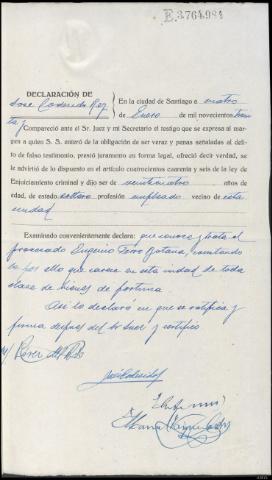 E.3764984
DECLARACIÓN DE
En la ciudad de Santiago a cuatro
de Enero de mil novecientos trein
ta. Compareció ante el Sr. Juez y mi Secretario el testigo que se expresa al margen
a quien S. S. enteró de la obligación de ser veraz y penas señaladas al delito
de falso testimonio, prestó juramento en forma legal, ofreció decir verdad, se
le advirtió de lo dispuesto en el artículo cuatrocientos cuarenta y seis de la ley de
Enjuiciamiento criminal y dijo ser de veinticuatro años de
edad, de estado soltero profesión empleado vecino de esta
ciudad
Examinado convenientemente declara: que conoce y trata al
procesado Eugenio Botana, constando
le por ello que carece en esta ciudad de toda
clase de bienes de fortuna.
Así lo declaró en que se ratifica y
firma despues del Sr Juez y certifico